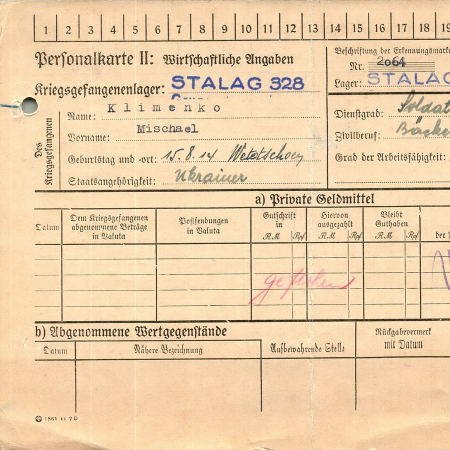 1 2 3 4 5 6 7 8 9 10 11 12 13 14 15 16 17 18 19
Personalkarte II: Wirtschaftliche Angaben
Beschriftung der Erkennungsmarke
Nr. 2064
Kriegsgefangenenlager: STALAG 328
Lager: STALAG
Des Kriegsgefangenen
Name: Klimenko
Vorname: Mischael
Geburtstag und -ort: 15.8.14
Staatsangehörigkeit: Ukrainer
Dienstgrad: Soldat
Zivilberuf: Bäcker
Grad der Arbeitsfähigkeit:
a) Private Geldmittel
Datum
Dem Kriegsgefangenen abgenommene Beträge in Valuta
Postsendungen in Valuta
Gutschrift in RM Rpf
Hiervon ausgezahlt RM Rpf
Bleibt Guthaben RM Rpf
der
b) Abgenommene Wertgegenstände
Datum
Nähere Bezeichnung
Aufbewahrende Stelle
Rückgabevermerk mit Datum